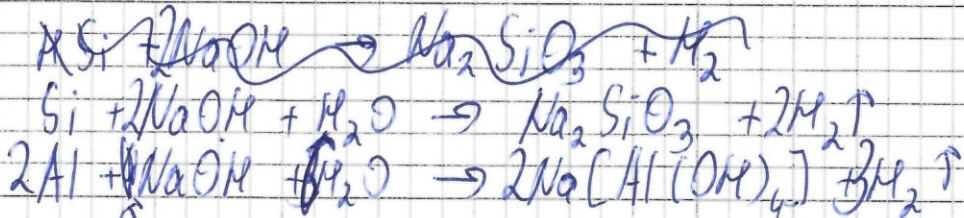 Si + 2NaOH → Na₂SiO₃ + H₂
Si + 2NaOH + H₂O → Na₂SiO₃ + 2H₂↑
2Al + NaOH + H₂O → 2Na[Al(OH)₄] + 3H₂↑